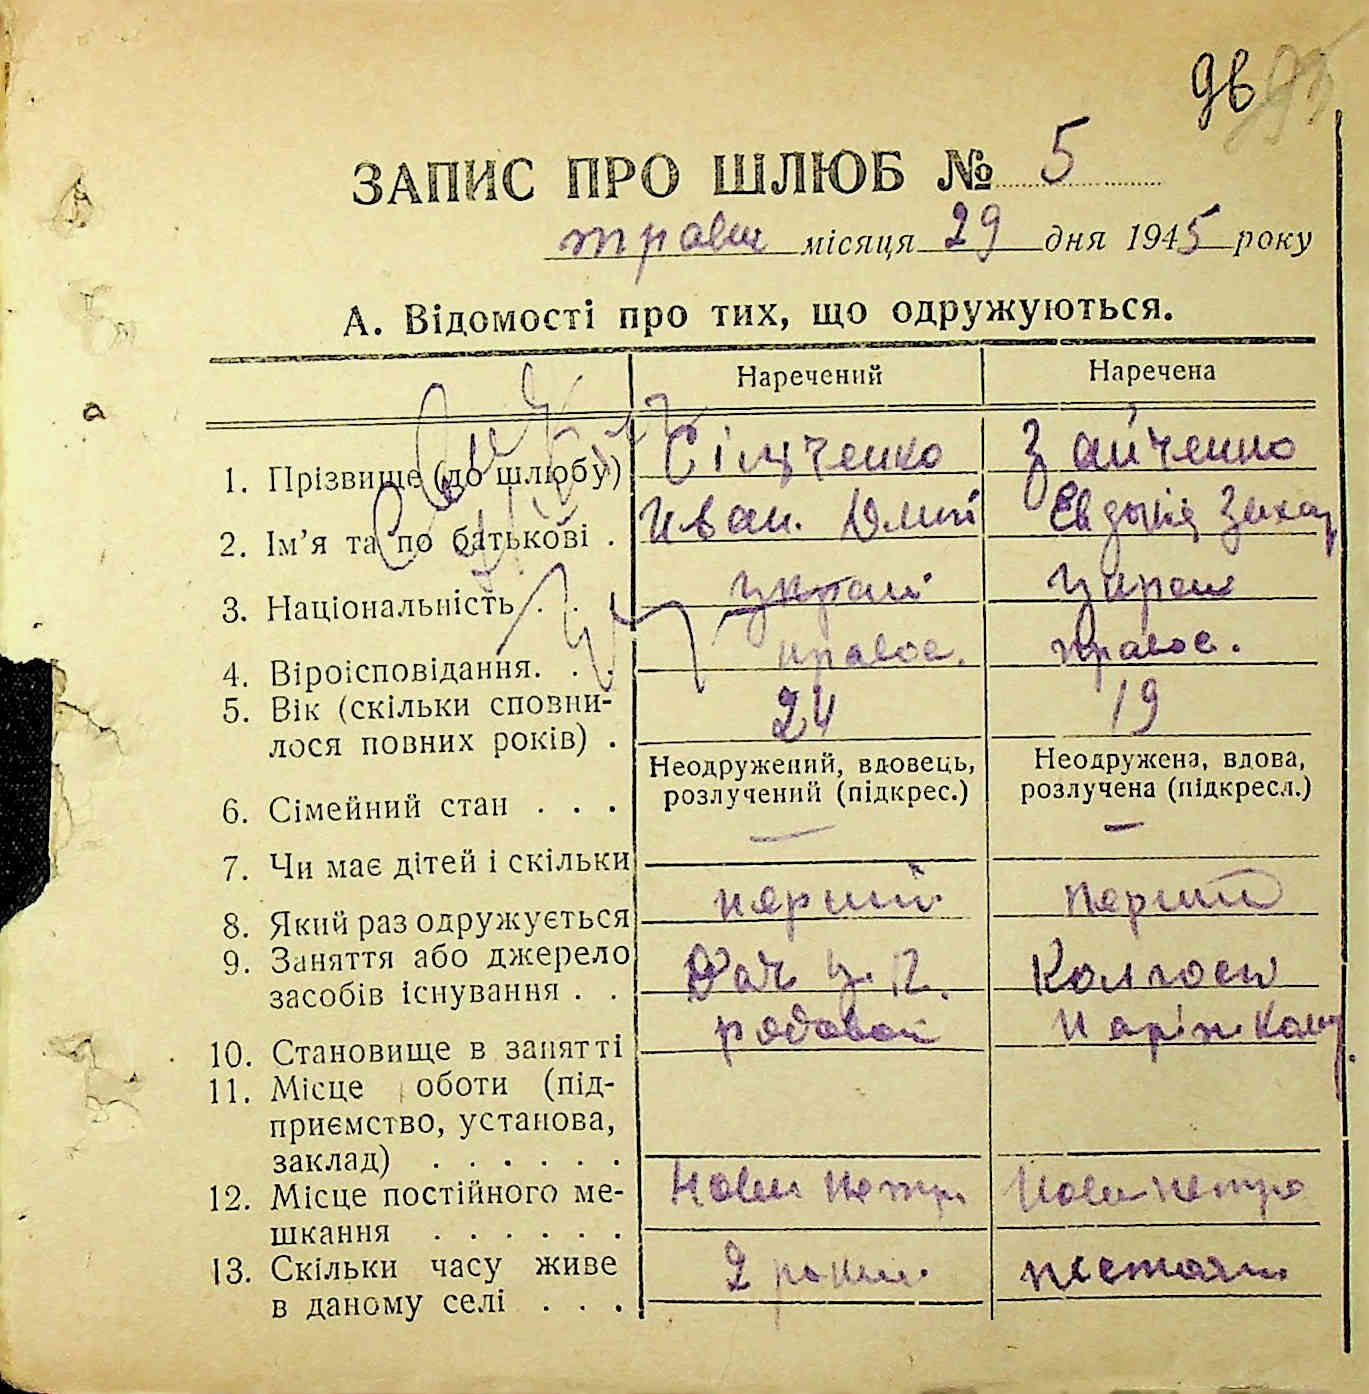 96
ЗАПИС ПРО ШЛЮБ № 5
травня місяця 29 дня 1945 року
А. Відомості про тих, що одружуються.
Наречений Наречена
1. Прізвище (до шлюбу) Зайченко
2. Ім’я та по батькові . Иван. Евдокія Захар
3. Національність . . украї украї
4. Віроісповідання. . . правос. правос.
5. Вік (скільки сповни- 24 19
лося повних років) .
Неодружений, вдовець, Неодружена, вдова,
6. Сімейний стан . . . розлучений (підкрес.) розлучена (підкресл.)
7. Чи має дітей і скільки — —
8. Який раз одружується перший перший
9. Заняття або джерело
засобів існування . .
10. Становище в занятті рядовой
11. Місце роботи (під-
приємство, установа,
заклад) . . . . . .
12. Місце постійного ме- Нови Петрі Нови Петрі
шкання . . . . . .
13. Скільки часу живе 2 роки
в даному селі . . .